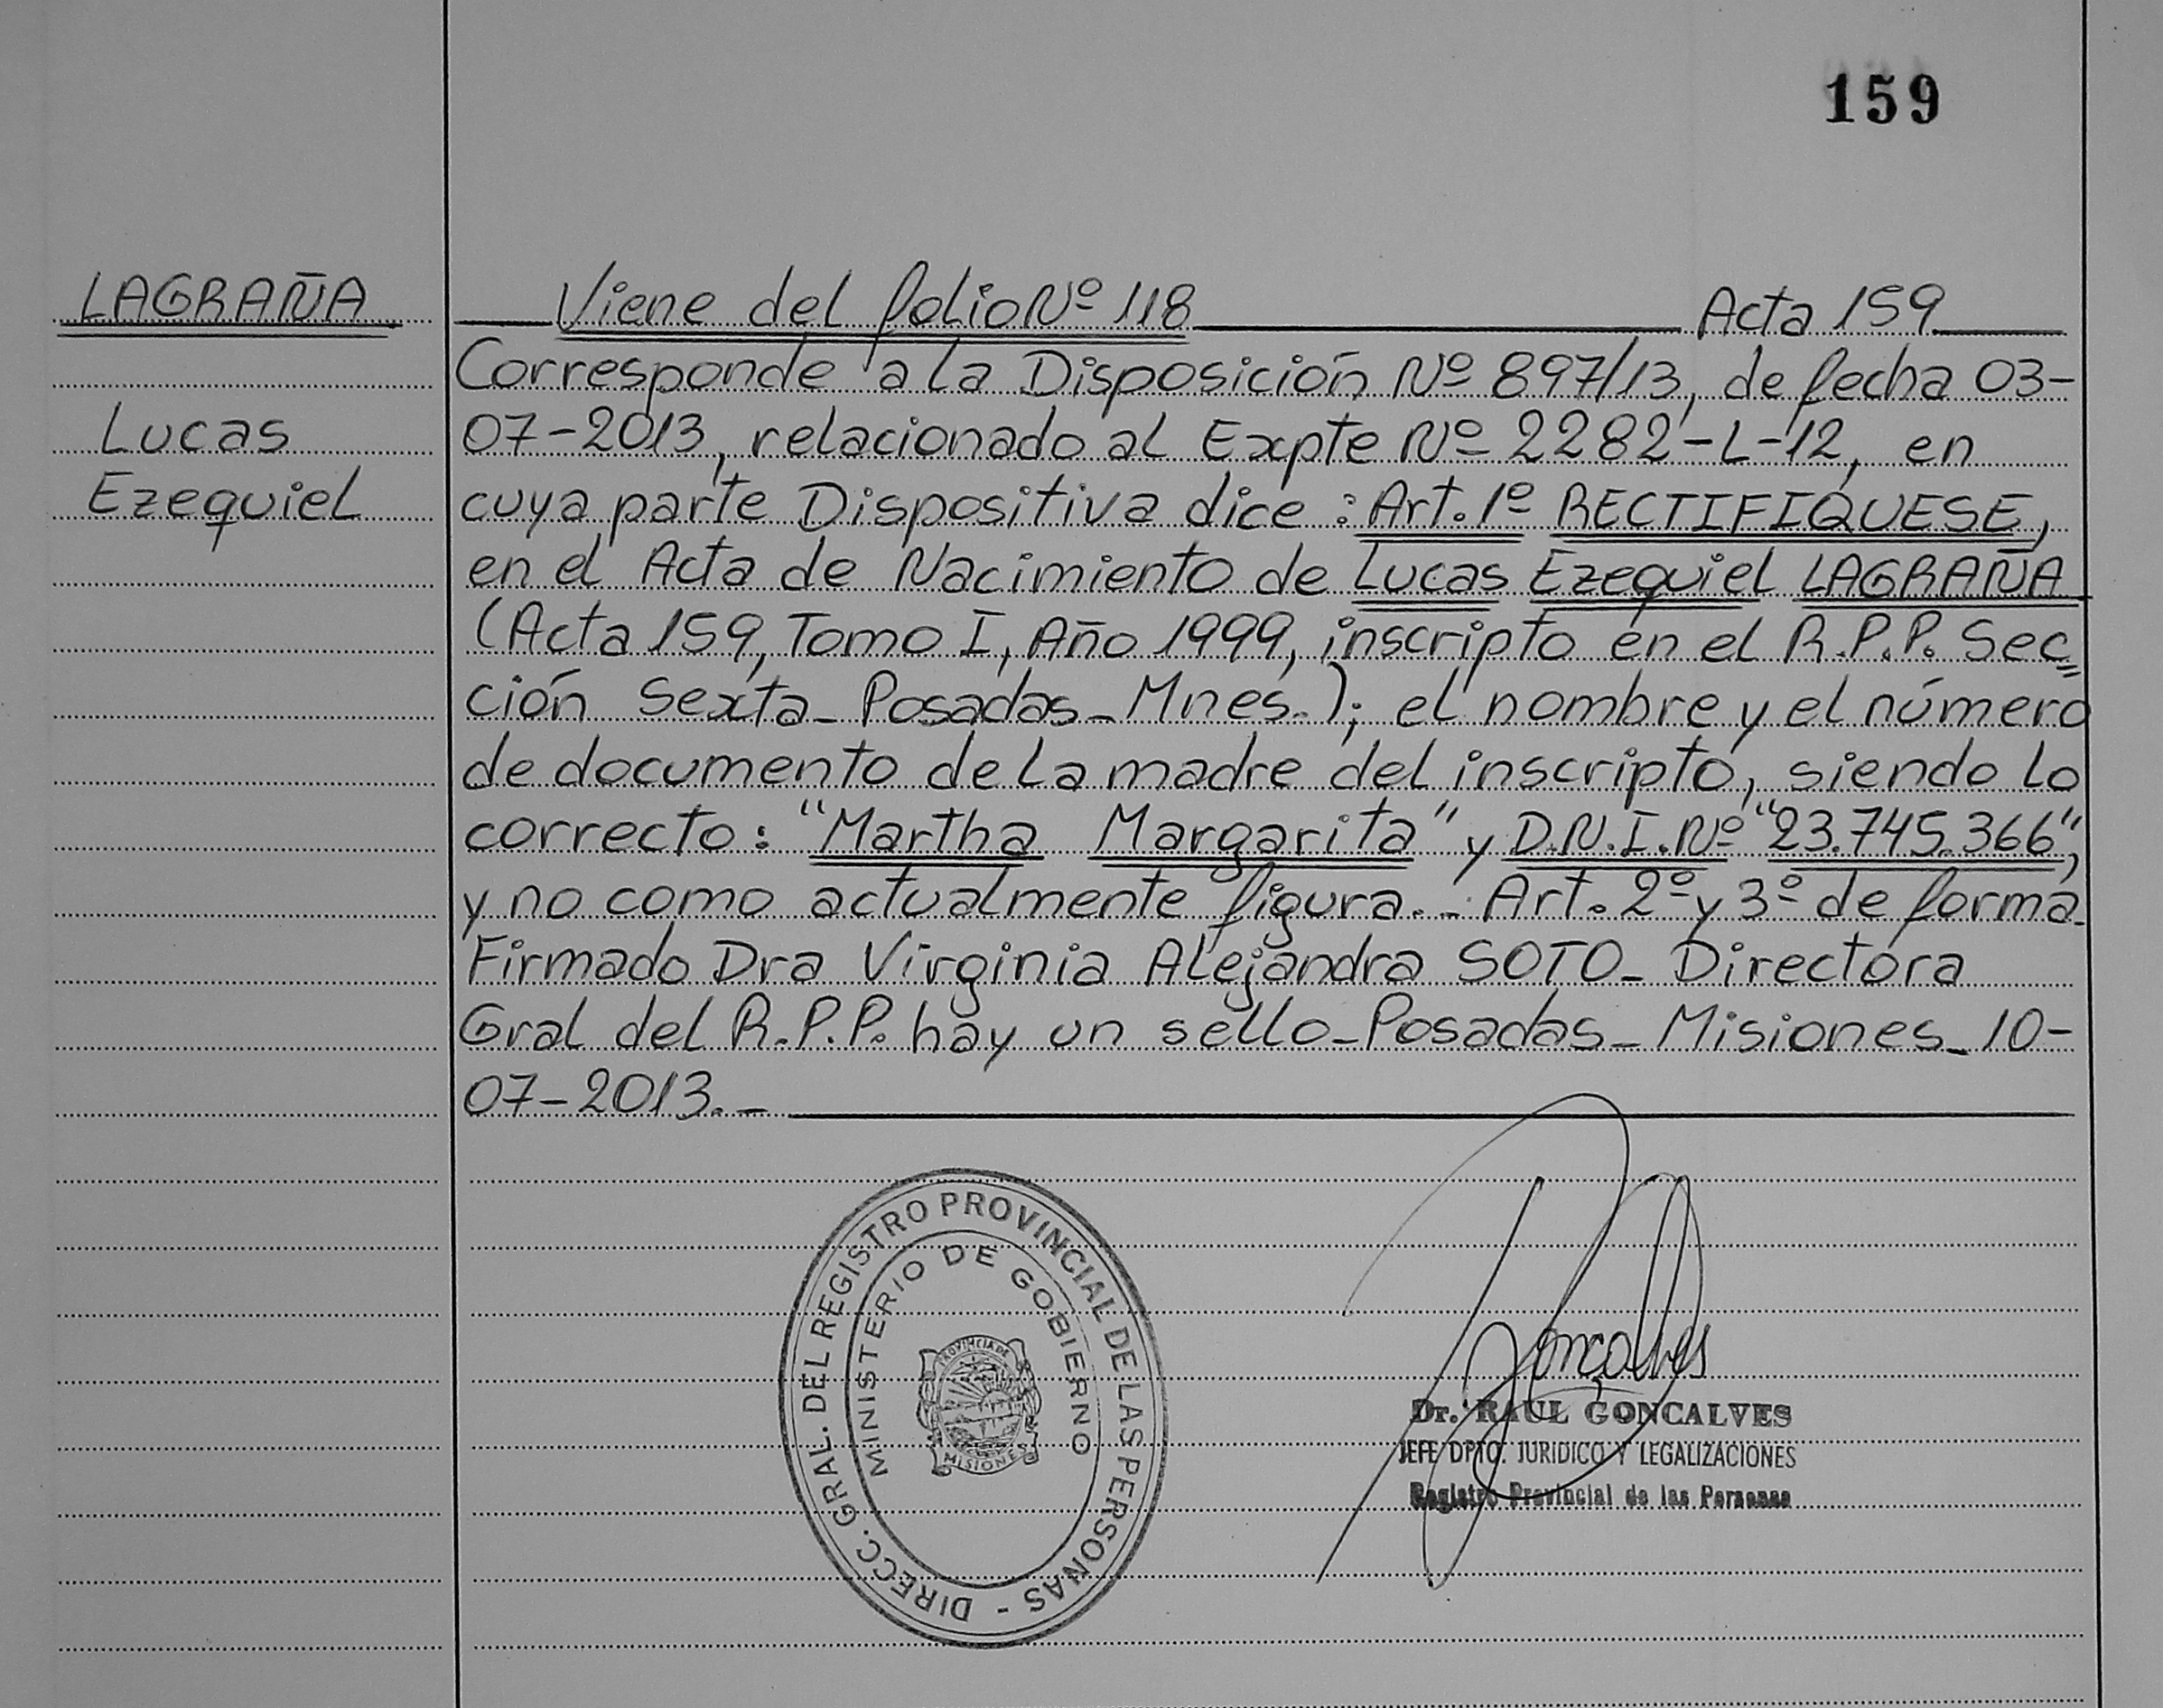 159
LAGRAÑA
Lucas
Ezequiel
Viene del folio Nº 118 Acta 159
Corresponde a la Disposición Nº 897/13, de fecha 03-
07-2013, relacionado al Expte Nº 2282-L-12, en
cuya parte Dispositiva dice: Art. 1º RECTIFIQUESE,
en el Acta de Nacimiento de Lucas Ezequiel LAGRAÑA
(Acta 159, Tomo I, Año 1999, inscripto en el R.P.P. Sec=
ción Sexta_ Posadas_ Mnes.); el nombre y el número
de documento de la madre del inscripto, siendo lo
correcto: "Martha Margarita" y D.N.I. Nº "23.745.366",
y no como actualmente figura._ Art. 2º y 3º de forma_
Firmado Dra Virginia Alejandra SOTO_ Directora
Gral del R.P.P. hay un sello_ Posadas_ Misiones_ 10-
07-2013.-
DIRECC. GRAL. DEL REGISTRO PROVINCIAL DE LAS PERSONAS -
MINISTERIO DE GOBIERNO
PROVINCIA DE
MISIONES
Gonçalves
Dr. RAUL GONCALVES
JEFE DPTO. JURIDICO Y LEGALIZACIONES
Registro Provincial de las Personas